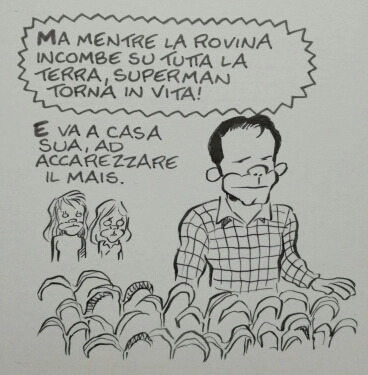 MA MENTRE LA ROVINA
INCOMBE SU TUTTA LA
TERRA, SUPERMAN
TORNA IN VITA!
E VA A CASA
SUA, AD
ACCAREZZARE
IL MAIS.